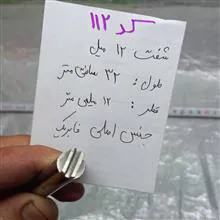 کد ۱۱۲
شفت ۱۲ میل
طول : ۳۲ سانتی متر
قطر : ۱۲ میلی متر
جنس اصلی فابریک